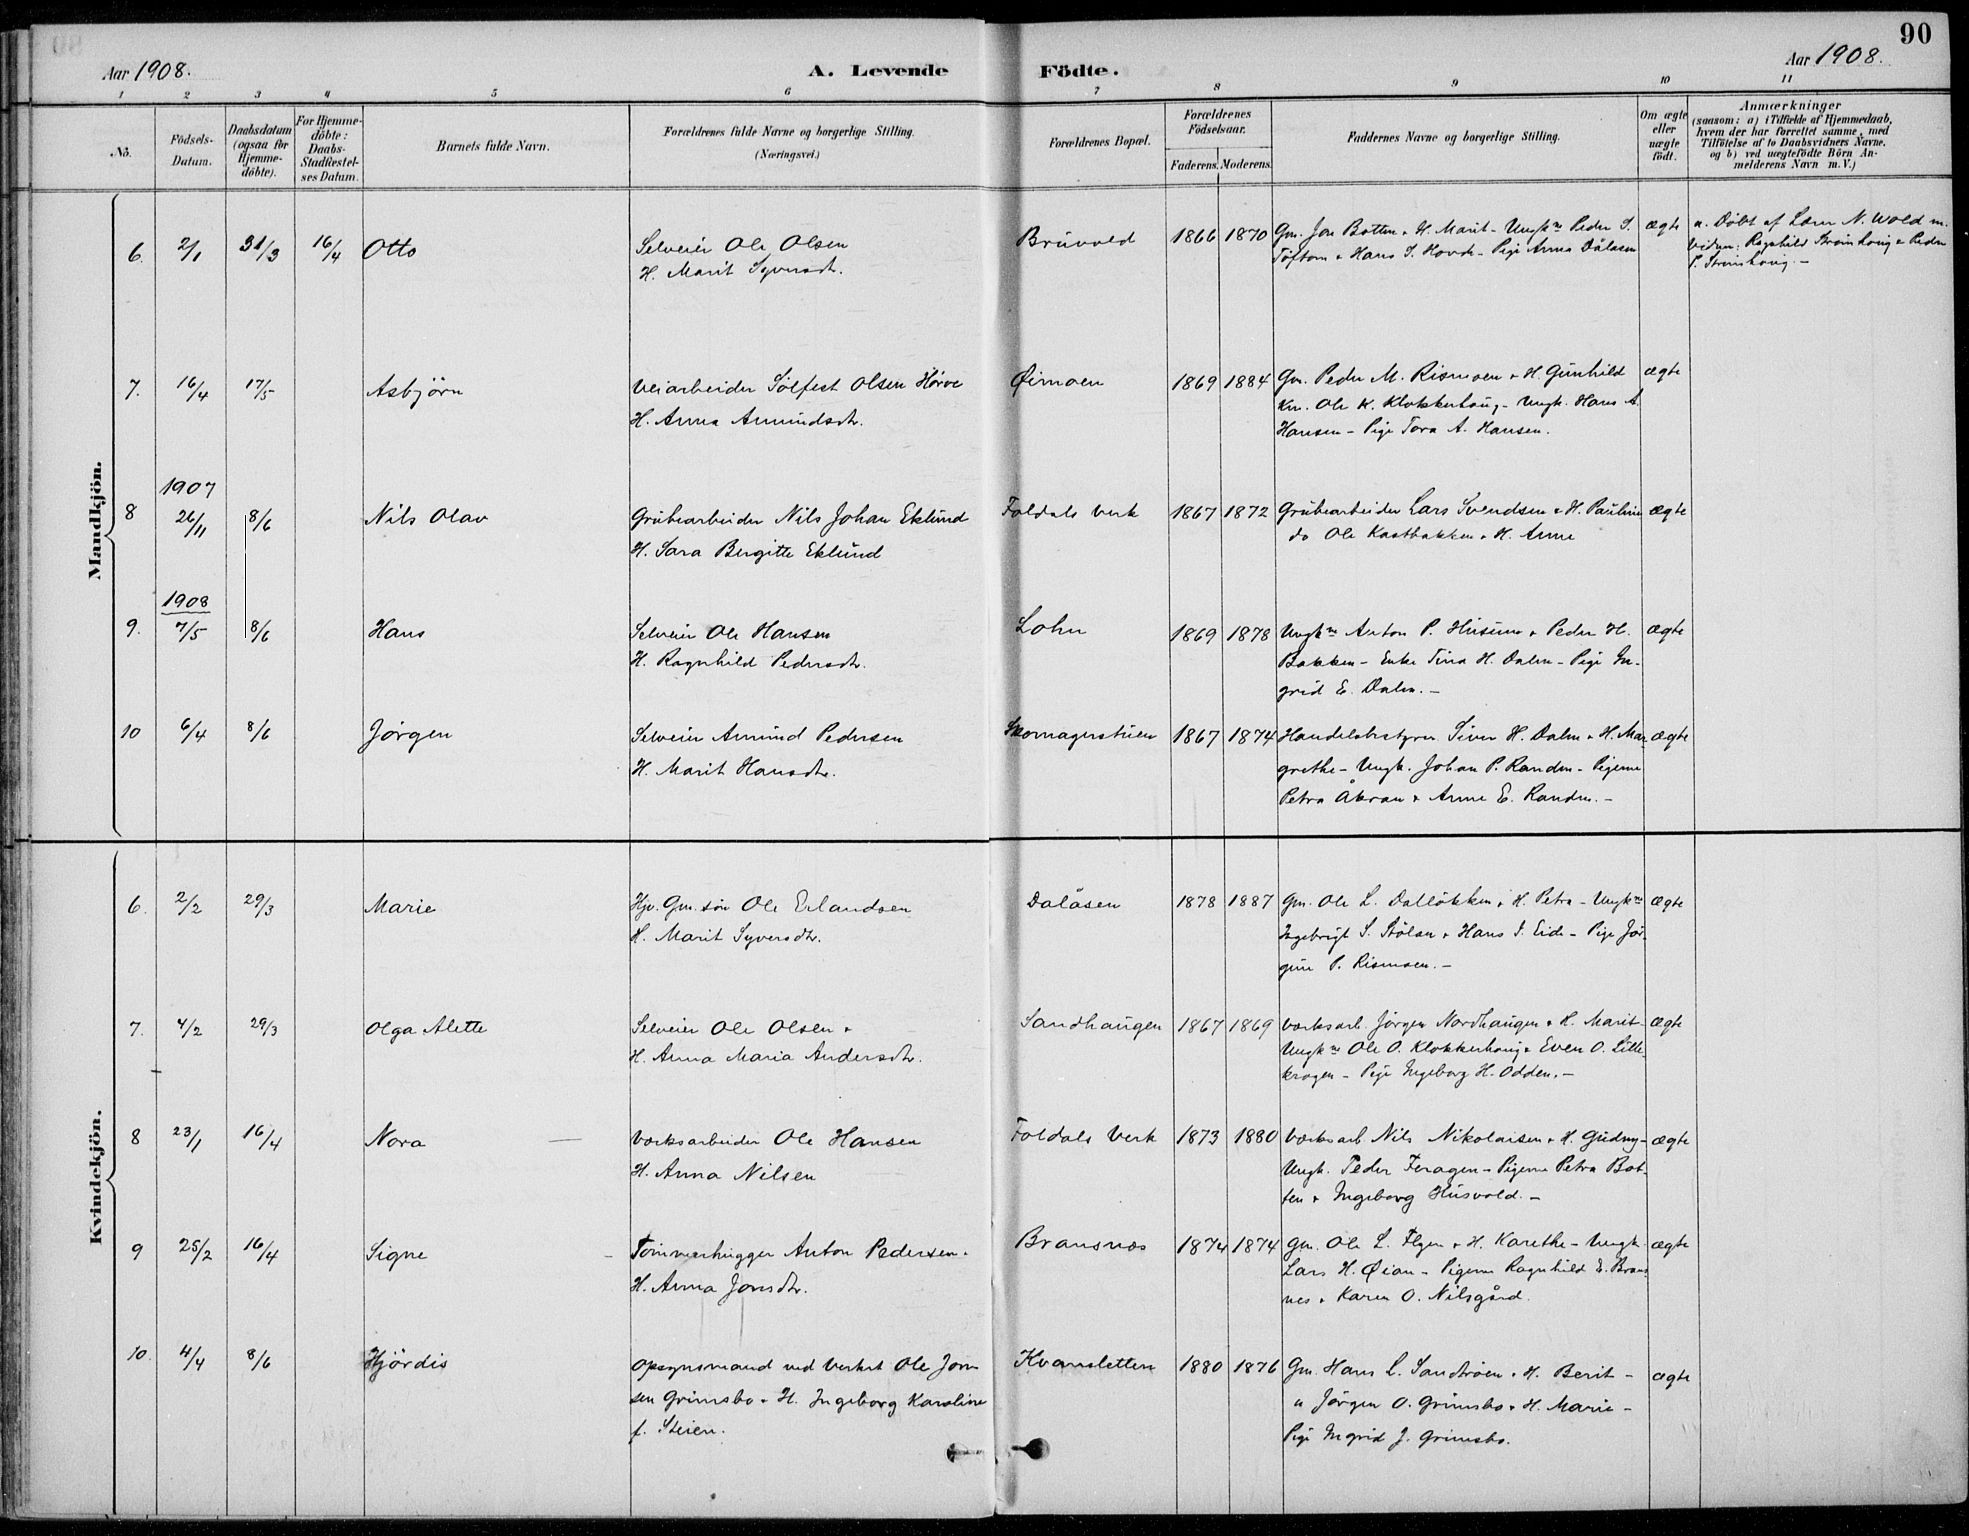 90
Aar 1908.
A. Levende Födte.
Aar 1908.
1 2 3 4 5 6 7 8 9 10 11
No.
Födsels-Datum.
Daabsdatum (ogsaa for Hjemme-döbte).
For Hjemme-döbte: Daabs-Stadfæstel-ses Datum.
Barnets fulde Navn.
Forældrenes fulde Navne og borgerlige Stilling.
(Næringsvei.)
Forældrenes Bopæl.
Forældrenes Födselsaar.
Faderens. Moderens.
Faddernes Navne og borgerlige Stilling.
Om ægte eller uægte födt.
Anmærkninger
(saasom: a) i Tilfælde af Hjemmedaab,
hvem der har forrettet samme, med
Tilföielse af to Daabsvidners Navne,
og b) ved uægtefödte Börn An-
melderens Navn m. V.)
Mandkjön.
6. 2/1 31/3 16/4 Otto Selveier Ole Olsen Brúvold 1866 1870 Gm. Jon Botten & H. Marit - Ungkm Peder S. ægte a. Döbt af Lærer N. Wold m.
H. Marit Syversdtr. Töftom & Hans S. Hovde - Pige Anna Dålåsen Vidner: Ragnhild Strömhoug & Peder
P. Strömhoug. -
7. 16/4 17/5 Asbjörn Veiarbeider Sölfest Olsen Hörve Øimoen 1869 1884 Gm. Peder M. Rismoen & H. Gúnhild ægte
H. Anna Amúndsdtr. Km. Ole K. Klokkerhoúg - Ungk. Hans A.
Hansen - Pige Tora A. Hansen.
1907
8 26/11 8/6 Nils Olav Grúbearbeider Nils Johan Eklúnd Foldals Verk 1867 1872 Grúbearbeider Lars Svendsen & H. Paúline ægte
H. Sara Bergitte Eklúnd do Ole Kastbakken & H. Anne
1908
9. 7/5 8/6 Hans Selveier Ole Hansen Lohn 1869 1878 Ungkm Anton P. Húsúm & Peder H. ægte
H. Ragnhild Pedersdtr. Bakken - Enke Tina H. Dalen - Pige In-
grid E. Dalen. -
10 6/4 8/6 Jörgen Selveier Amúnd Pedersen Skomagerstúen 1867 1874 Handelsbestyrer Siver H. Dalen & H. Mar- ægte
H. Marit Hansdtr. grethe - Ungk. Johan P. Randen - Pigerne
Petra Åkran & Anne E. Randen. -
Kvindekjön.
6. 2/2 29/3 Marie Hjv. Gm. sön Ole Erlandsen Dalåsen 1878 1887 Gm. Ole L. Dallökken & H. Petra - Ungkm ægte
H. Marit Syversdtr. Ingebrigt S. Stölan & Hans S. Eide - Pige Jör-
gine P. Rismoen. -
7. 4/2 29/3 Olga Alette Selveier Ole Olsen & Sandhaúgen 1867 1869 Værksarb. Jörgen Nordhaúgen & H. Marit - ægte
H. Anna Maria Andersdtr. Ungkm Ole O. Klokkerhoúg & Even O. Lille-
krogen - Pige Ingeborg H. Odden. -
8 23/1 16/4 Nora Værksarbeider Ole Hansen Foldals Verk 1873 1880 Værksarb Nils Nikolaisen & H. Gúdny - ægte
H. Anna Nilsen Ungk. Peder Feragen - Pigerne Petra Bot-
ten & Ingeborg Húsvold. -
9 25/2 16/4 Signe Tömmerhúgger Anton Pedersen & Bransnes 1874 1874 Gm. Ole L. Elgen & H. Karethe - Ungk. ægte
H. Anna Jonsdtr. Lars H. Øian - Pigerne Ragnhild E. Brans-
nes & Karen O. Nilsgård.
10. 4/4 8/6 Hjördis Opsynsmand ved Verket Ole Jon- Kvernsletten 1880 1876 Gm. Hans L. Sandtröen & H. Berit - ægte
sen Grimsbo & H. Ingeborg Karoline " Jörgen O. Grimsbo & H. Marie -
f. Steien. Pige Ingrid J. Grimsbo.